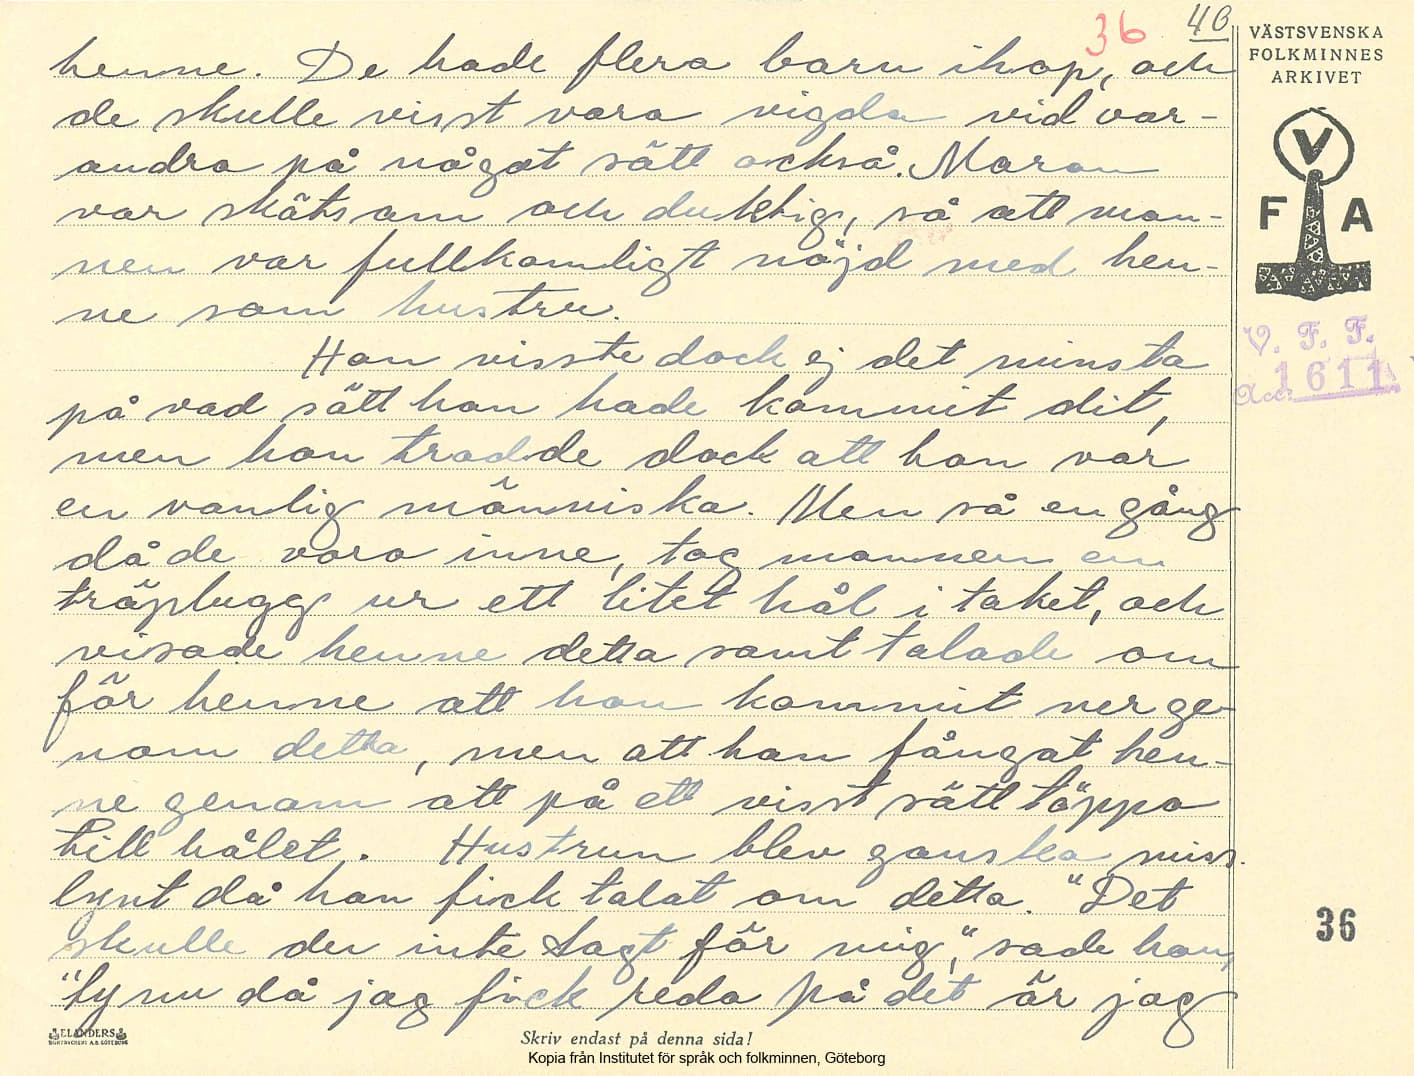 36 4B
henne. De hade flera barn ihop, och
de skulle visst vara vigda vid var-
andra på något sätt också. Maran
var skätsam och duktig, så att man-
nen var fullkomligt nöjd med hen-
ne som hustru.
Hon visste dock ej det minsta
på vad sätt hon hade kommit dit,
men hon trodde dock att hon var
en vanlig människa. Men så en gång
då de voro inne, tog mannen en
träplugg ur ett litet hål i taket, och
visade henne detta samt talade om
för henne att hon kommit ner ge-
nom detta, men att han fångat hen-
ne genom att på ett visst sätt täppa
till hålet. Hustrun blev ganska miss-
lynt då hon fick talat om detta. "Det
skulle du inte sagt för mig," sade hon,
"ty nu då jag fick reda på det är jag
VÄSTSVENSKA
FOLKMINNES
ARKIVET
V
F A
V. F. F.
Acc: 1611
36
ELANDERS
BOKTRYCKERI A.B. GÖTEBORG
Skriv endast på denna sida!
Kopia från Institutet för språk och folkminnen, Göteborg